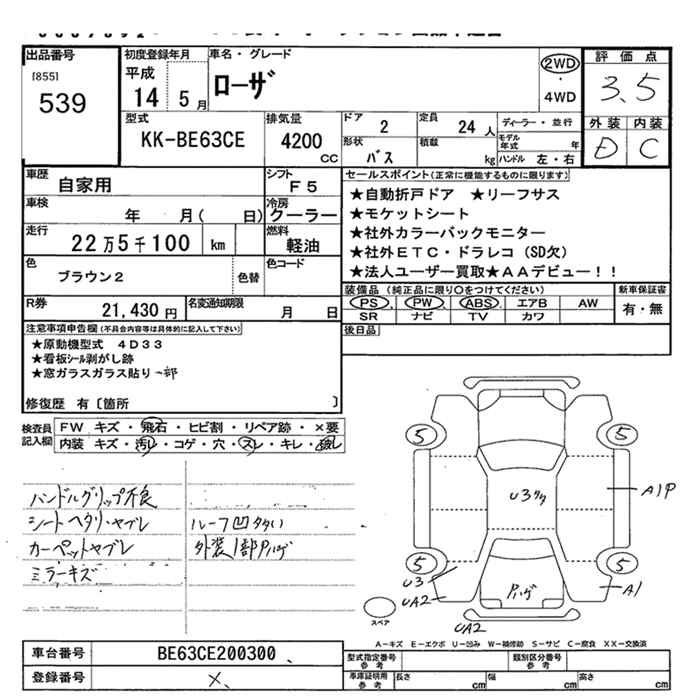 出品番号
[855]
539
初度登録年月
平成
14 5 月
車名・グレード
ローザ
2WD
・
4WD
評価点
3.5
外装 内装
D C
型式
KK-BE63CE
排気量
4200 cc
ドア
2
形状
バス
定員
24 人
積載
kg
ディーラー・並行
モデル年式 年
ハンドル 左・右
車歴
自家用
シフト
F5
車検
年 月( 日)
冷房
クーラー
走行
22万5千100 km
燃料
軽油
色
ブラウン2
色替
色コード
R券
21,430円
名変通知期限
月 日
セールスポイント(正常に機能するものに限ります)
★自動折戸ドア ★リーフサス
★モケットシート
★社外カラーバックモニター
★社外ETC・ドラレコ(SD欠)
★法人ユーザー買取★AAデビュー!!
装備品(純正品に限り○をつけてください)
PS PW ABS エアB AW
SR ナビ TV カワ
新車保証書
有・無
後日品
注意事項申告欄(不具合内容等は具体的に記入して下さい)
★原動機型式 4D33
★看板シール剥がし跡
★窓ガラスガラス貼り一部
修復歴 有〔箇所 〕
検査員記入欄
FW キズ・飛石・ヒビ割・リペア跡・×要
内装 キズ・汚レ・コゲ・穴・スレ・キレ・
ハンドルグリップ不良
シートヘタリ・ヤブレ
カーペットヤブレ
ミラーキズ
ルーフ凹タタい
外装1部Pハゲ
5 5
U3タタ
A1P
5 5
U3
UA2
Pハゲ
A1
スペア
UA2
A-キズ E-エクボ U-凹み W-補修跡 S-サビ C-腐食 XX-交換済
車台番号
BE63CE200300
登録番号
×
型式指定番号
参考
類別区分番号
参考
車庫証明用
参考
長さ cm
幅 cm
高さ cm